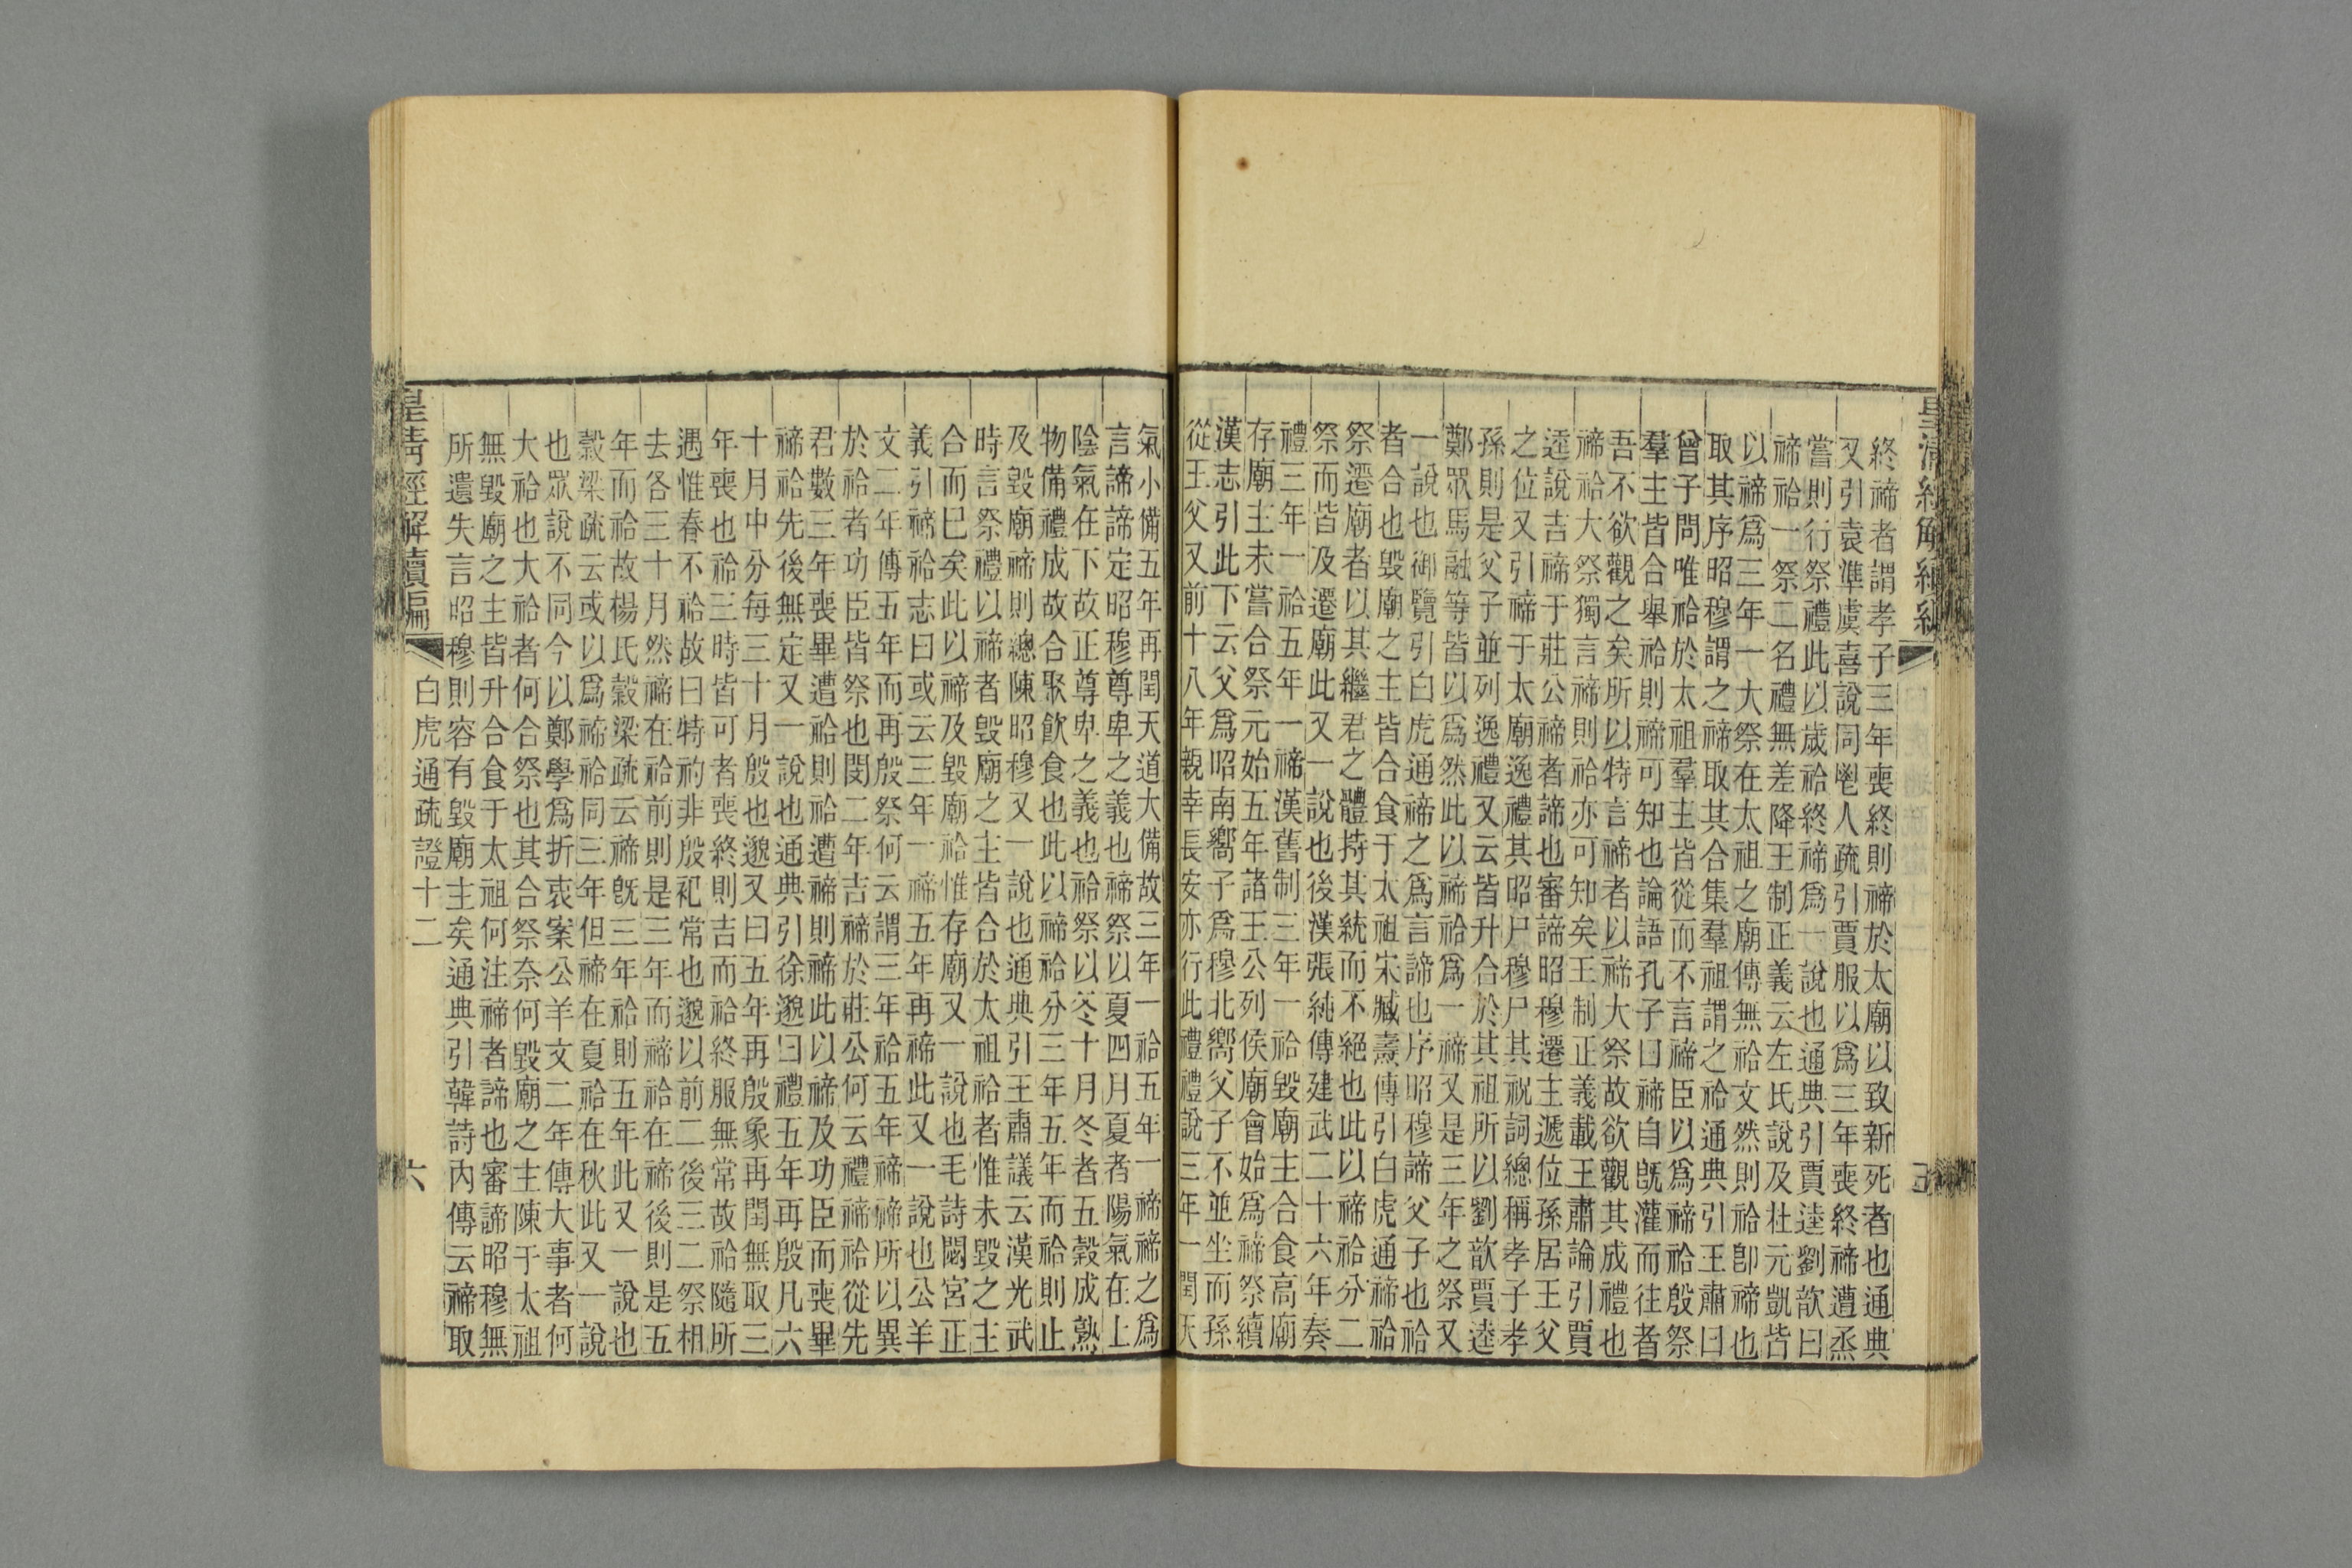 終禘者謂孝子三年喪終則禘於太廟以致新死者也通典
又引袁準虞喜說同鬯人疏引賈服以爲三年喪終禘遭烝
嘗則行祭禮此以歲祫終禘爲一說也通典引賈逵劉歆曰
禘祫一祭二名禮無差降王制正義云左氏說及杜元凱皆
以禘爲三年一大祭在太祖之廟傳無祫文然則祫卽禘也
取其序昭穆謂之禘取其合集羣祖謂之祫通典引王肅曰
曾子問唯祫於太祖羣主皆從而不言禘臣以爲禘祫殷祭
羣主皆合舉祫則禘可知也論語孔子曰禘自旣灌而往者
吾不欲觀之矣所以特言禘者以禘大祭故欲觀其成禮也
禘祫大祭獨言禘則祫亦可知矣王制正義載王肅論引賈
逵說吉禘于莊公禘者諦也審諦昭穆遷主遞位孫居王父
之位又引禘于太廟逸禮其昭尸穆尸其祝詞總稱孝子孝
孫則是父子並列逸禮又云皆升合於其祖所以劉歆賈逵
鄭眾馬融等皆以爲然此以禘祫爲一禘又是三年之祭又
一說也御覽引白虎通禘之爲言諦也序昭穆諦父子也祫
者合也毀廟之主皆合食于太祖宋臧燾傳引白虎通禘祫
祭遷廟者以其繼君之體持其統而不絕也此以禘祫分二
祭而皆及遷廟此又一說也後漢張純傳建武二十六年奏
禮三年一祫五年一禘漢舊制三年一祫毀廟主合食高廟
存廟主未嘗合祭元始五年諸王公列侯廟會始爲禘祭續
漢志引此下云父爲昭南嚮子爲穆北嚮父子不並坐而孫
從王父又前十八年親幸長安亦行此禮禮說三年一閏天
氣小備五年再閏天道大備故三年一祫五年一禘禘之爲
言諦諦定昭穆尊卑之義也禘祭以夏四月夏者陽氣在上
陰氣在下故正尊卑之義也祫祭以冬十月冬者五穀成熟
物備禮成故合聚飮食也此以禘祫分三年五年而祫則止
及毀廟禘則總陳昭穆又一說也通典引王肅議云漢光武
時言祭禮以禘者毀廟之主皆合於太祖祫者惟未毀之主
合而巳矣此以禘及毀廟祫惟存廟又一說也毛詩閟宮正
義引禘祫志曰或云三年一禘五年再禘此又一說也公羊
文二年傳五年而再殷祭何云謂三年祫五年禘禘所以異
於祫者功臣皆祭也閔二年吉禘於莊公何云禮禘祫從先
君數三年喪畢遭祫則祫遭禘則禘此以禘及功臣而喪畢
禘祫先後無定又一說也通典引徐邈曰禮五年再殷凡六
十月中分每三十月殷也邈又曰五年再殷象再閏無取三
年喪也祫三時皆可者喪終則吉而祫終服無常故祫隨所
遇惟春不祫故曰特礿非殷祀常也邈以前二後三二祭相
去各三十月然禘在祫前則是三年而禘祫在禘後則是五
年而祫故楊氏穀梁疏云禘旣三年祫則五年此又一說也
穀梁疏云或以爲禘祫同三年但禘在夏祫在秋此又一說
也眾說不同今以鄭學爲折衷案公羊文二年傳大事者何
大祫也大祫者何合祭也其合祭奈何毀廟之主陳于太祖
無毀廟之主皆升合食于太祖何注禘者諦也審諦昭穆無
所遺失言昭穆則容有毀廟主矣通典引韓詩內傳云禘取
皇淸經解續編
白虎通疏證十二
六